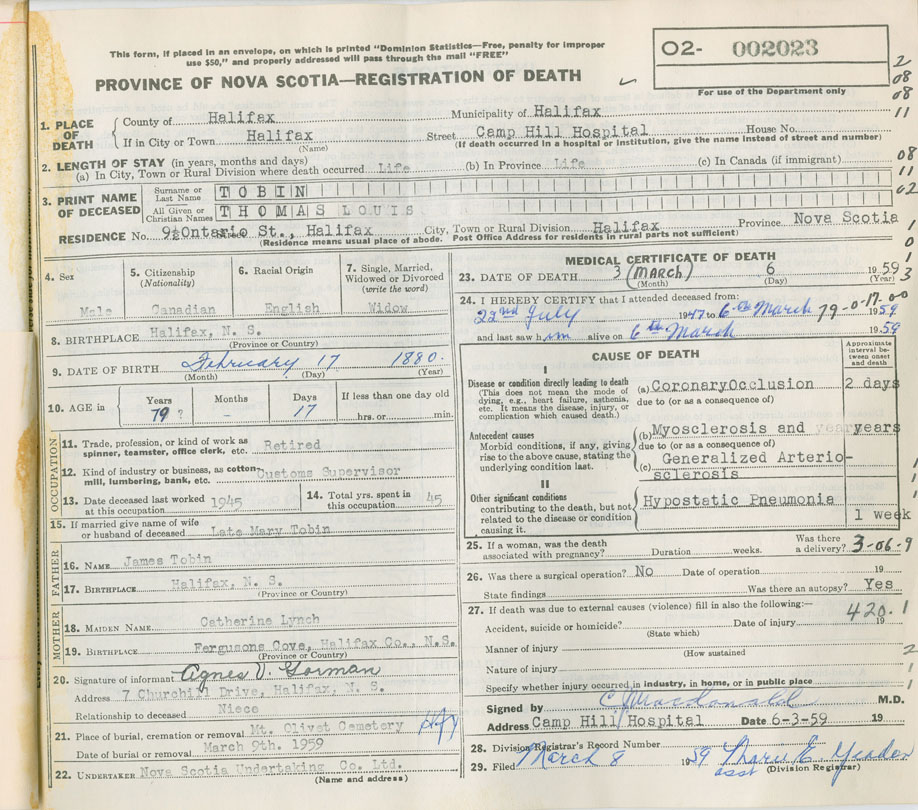 This form, if placed in an envelope, on which is printed "Dominion Statistics—Free, penalty for improper
use $50," and properly addressed will pass through the mail "FREE"
PROVINCE OF NOVA SCOTIA—REGISTRATION OF DEATH
O2- 002023
For use of the Department only
2
08
08
11
1. PLACE OF DEATH
County of Halifax Municipality of Halifax
If in City or Town Halifax Street Camp Hill Hospital House No.
(Name) (If death occurred in a hospital or institution, give the name instead of street and number)
2. LENGTH OF STAY (in years, months and days)
(a) In City, Town or Rural Division where death occurred Life (b) In Province Life (c) In Canada (if immigrant)
08
11
02
3. PRINT NAME OF DECEASED
Surname or Last Name TOBIN
All Given or Christian Names THOMAS LOUIS
RESIDENCE No. 9½ Ontario St., Halifax City, Town or Rural Division Halifax Province Nova Scotia
(Residence means usual place of abode. Post Office Address for residents in rural parts not sufficient)
4. Sex
Male
5. Citizenship
(Nationality)
Canadian
6. Racial Origin
English
7. Single, Married,
Widowed or Divorced
(write the word)
Widow
8. BIRTHPLACE Halifax, N. S.
(Province or Country)
9. DATE OF BIRTH February 17 1880.
(Month) (Day) (Year)
10. AGE in Years Months Days If less than one day old
79 ? - 17 hrs. or min.
OCCUPATION
11. Trade, profession, or kind of work as
spinner, teamster, office clerk, etc. Retired
12. Kind of industry or business, as cotton
mill, lumbering, bank, etc. Customs Supervisor
13. Date deceased last worked
at this occupation 1945
14. Total yrs. spent in
this occupation 45
15. If married give name of wife
or husband of deceased Late Mary Tobin
FATHER
16. NAME James Tobin
17. BIRTHPLACE Halifax, N. S.
(Province or Country)
MOTHER
18. MAIDEN NAME Catherine Lynch
19. BIRTHPLACE Fergusons Cove, Halifax Co., N.S.
(Province or Country)
20. Signature of informant Agnes V. Gorman
Address 7 Churchill Drive, Halifax, N. S.
Relationship to deceased Niece
21. Place of burial, cremation or removal Mt. Olivet Cemetery
Date of burial or removal March 9th. 1959
22. UNDERTAKER Nova Scotia Undertaking Co. Ltd.
(Name and address)
MEDICAL CERTIFICATE OF DEATH
23. DATE OF DEATH 3 (MARCH) 6 1959
(Month) (Day) (Year)
24. I HEREBY CERTIFY that I attended deceased from:
22nd July 1947 to 6th March 1959
79-0-17-00
and last saw him alive on 6th March 1959
CAUSE OF DEATH
Approximate
interval be-
tween onset
and death
I
Disease or condition directly leading to death
(This does not mean the mode of
dying, e.g., heart failure, asthenia,
etc. It means the disease, injury, or
complication which caused death.)
(a) Coronary Occlusion 2 days
due to (or as a consequence of)
Antecedent causes
Morbid conditions, if any, giving
rise to the above cause, stating the
underlying condition last.
(b) Myosclerosis and years
due to (or as a consequence of)
(c) Generalized Arterio-
sclerosis
II
Other significant conditions
contributing to the death, but not
related to the disease or condition
causing it.
Hypostatic Pneumonia
1 week
25. If a woman, was the death
associated with pregnancy? Duration weeks. Was there
a delivery? 3-06-9
26. Was there a surgical operation? No Date of operation 19
State findings Was there an autopsy? Yes
27. If death was due to external causes (violence) fill in also the following:—
420.1
Accident, suicide or homicide? Date of injury 19
(State which)
Manner of injury
(How sustained
Nature of injury
Specify whether injury occurred in industry, in home, or in public place
Signed by M.D.
Address Camp Hill Hospital Date 6-3-59 19
28. Division Registrar's Record Number
29. Filed March 8 1959
asst (Division Registrar)